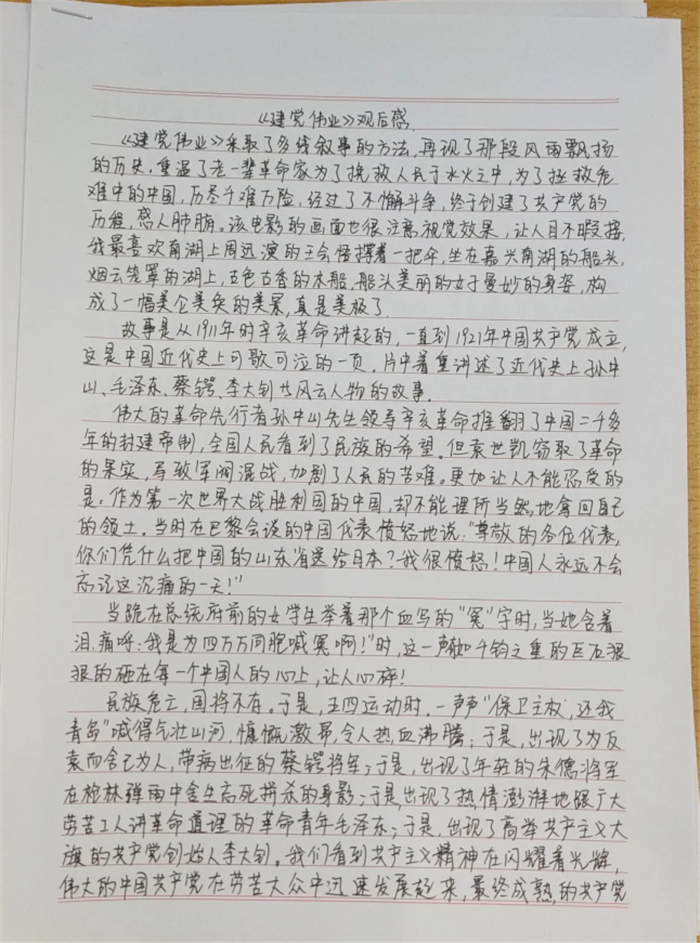 《建党伟业》观后感.
《建党伟业》采取了多线叙事的方法,再现了那段风雨飘扬
的历史,重温了老一辈革命家为了挽救人民于水火之中,为了拯救危
难中的中国,历尽千难万险,经过了不懈斗争,终于创建了共产党的
历程,感人肺腑。该电影的画面也很注意视觉效果,让人目不暇接,
我最喜欢南湖上周迅演的王会悟撑着一把伞,坐在嘉兴南湖的船头,
烟云笼罩的湖上,古色古香的木船,船头美丽的女子曼妙的身姿,构
成了一幅美仑美奂的美景,真是美极了.
故事是从1911年时辛亥革命讲起的,一直到1921年中国共产党成立,
这是中国近代史上可歌可泣的一页.片中着重讲述了近代史上孙中
山、毛泽东、蔡锷、李大钊等风云人物的故事.
伟大的革命先行者孙中山先生领导辛亥革命推翻了中国二千多
年的封建帝制,全国人民看到了民族的希望.但袁世凯窃取了革命
的果实,导致军阀混战,加剧了人民的苦难。更加让人不能忍受的
是。作为第一次世界大战胜利国的中国,却不能理所当然地拿回自己
的领土.当时在巴黎会谈的中国代表愤怒地说:"尊敬的各位代表,
你们凭什么把中国的山东省送给日本?我很愤怒!中国人永远不会
忘记这沉痛的一天!"
当跪在总统府前的女学生举着那个血写的"冤"字时,当她含着
泪痛呼:我是为四万万同胞喊冤啊!"时,这一声如千钧之重的巨石狠
狠的砸在每一个中国人的心上,让人心碎!
民族危亡,国将不存。于是,五四运动时.一声声"保卫主权,还我
青岛"喊得气壮山河,慷慨激昂,令人热血沸腾;于是,出现了为反
袁而舍己为人,带病出征的蔡锷将军;于是,出现了年轻的朱德将军
在枪林弹雨中舍生忘死拼杀的身影;于是,出现了热情澎湃地跟广大
劳苦工人讲革命道理的革命青年毛泽东;于是,出现了高举共产主义大
旗的共产党创始人李大钊。我们看到共产主义精神在闪耀着光辉,
伟大的中国共产党在劳苦大众中迅速发展起来,最终成熟,的共产党